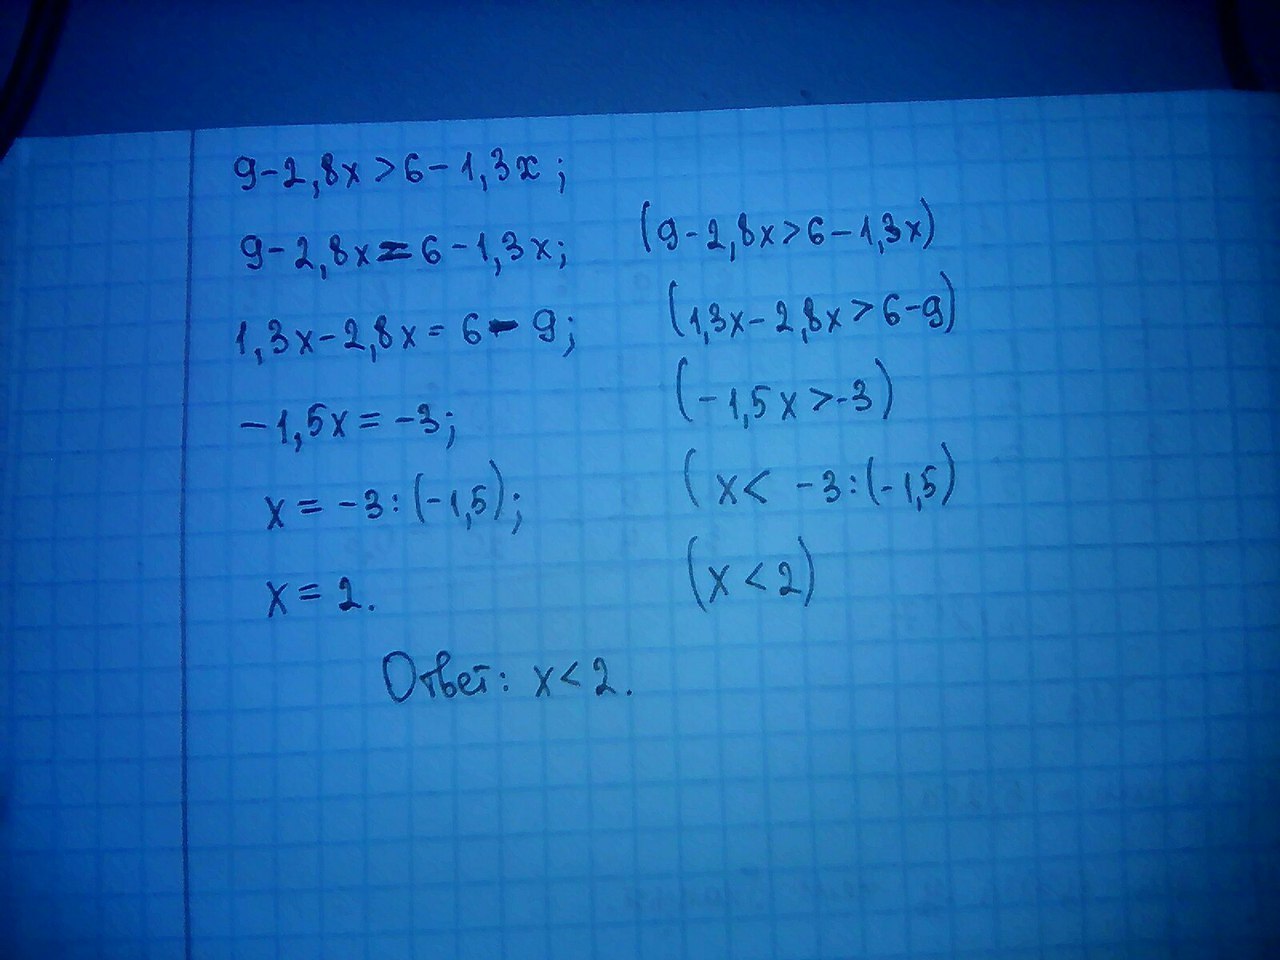 9-2,8x>6-1,3x;
9-2,8x=6-1,3x; (9-2,8x>6-1,3x)
1,3x-2,8x=6-9; (1,3x-2,8x>6-9)
-1,5x=-3; (-1,5x>-3)
x=-3:(-1,5); (x<-3:(-1,5)
x=2. (x<2)
Ответ: x<2.